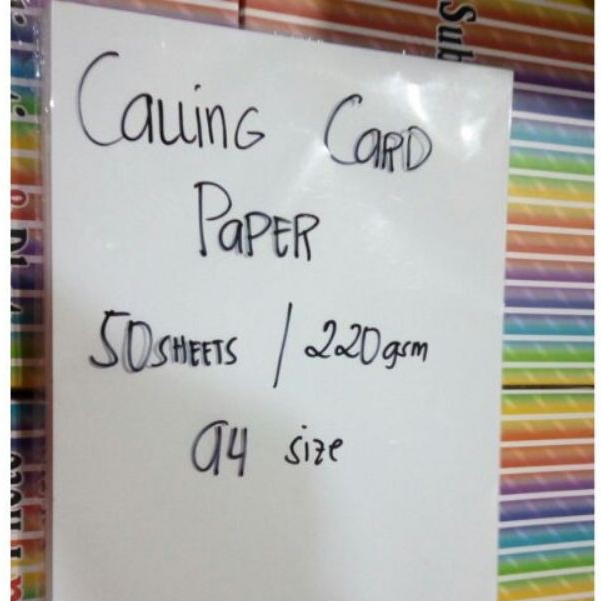 Calling Card
Paper
50 Sheets / 220gsm
A4 size
Sub